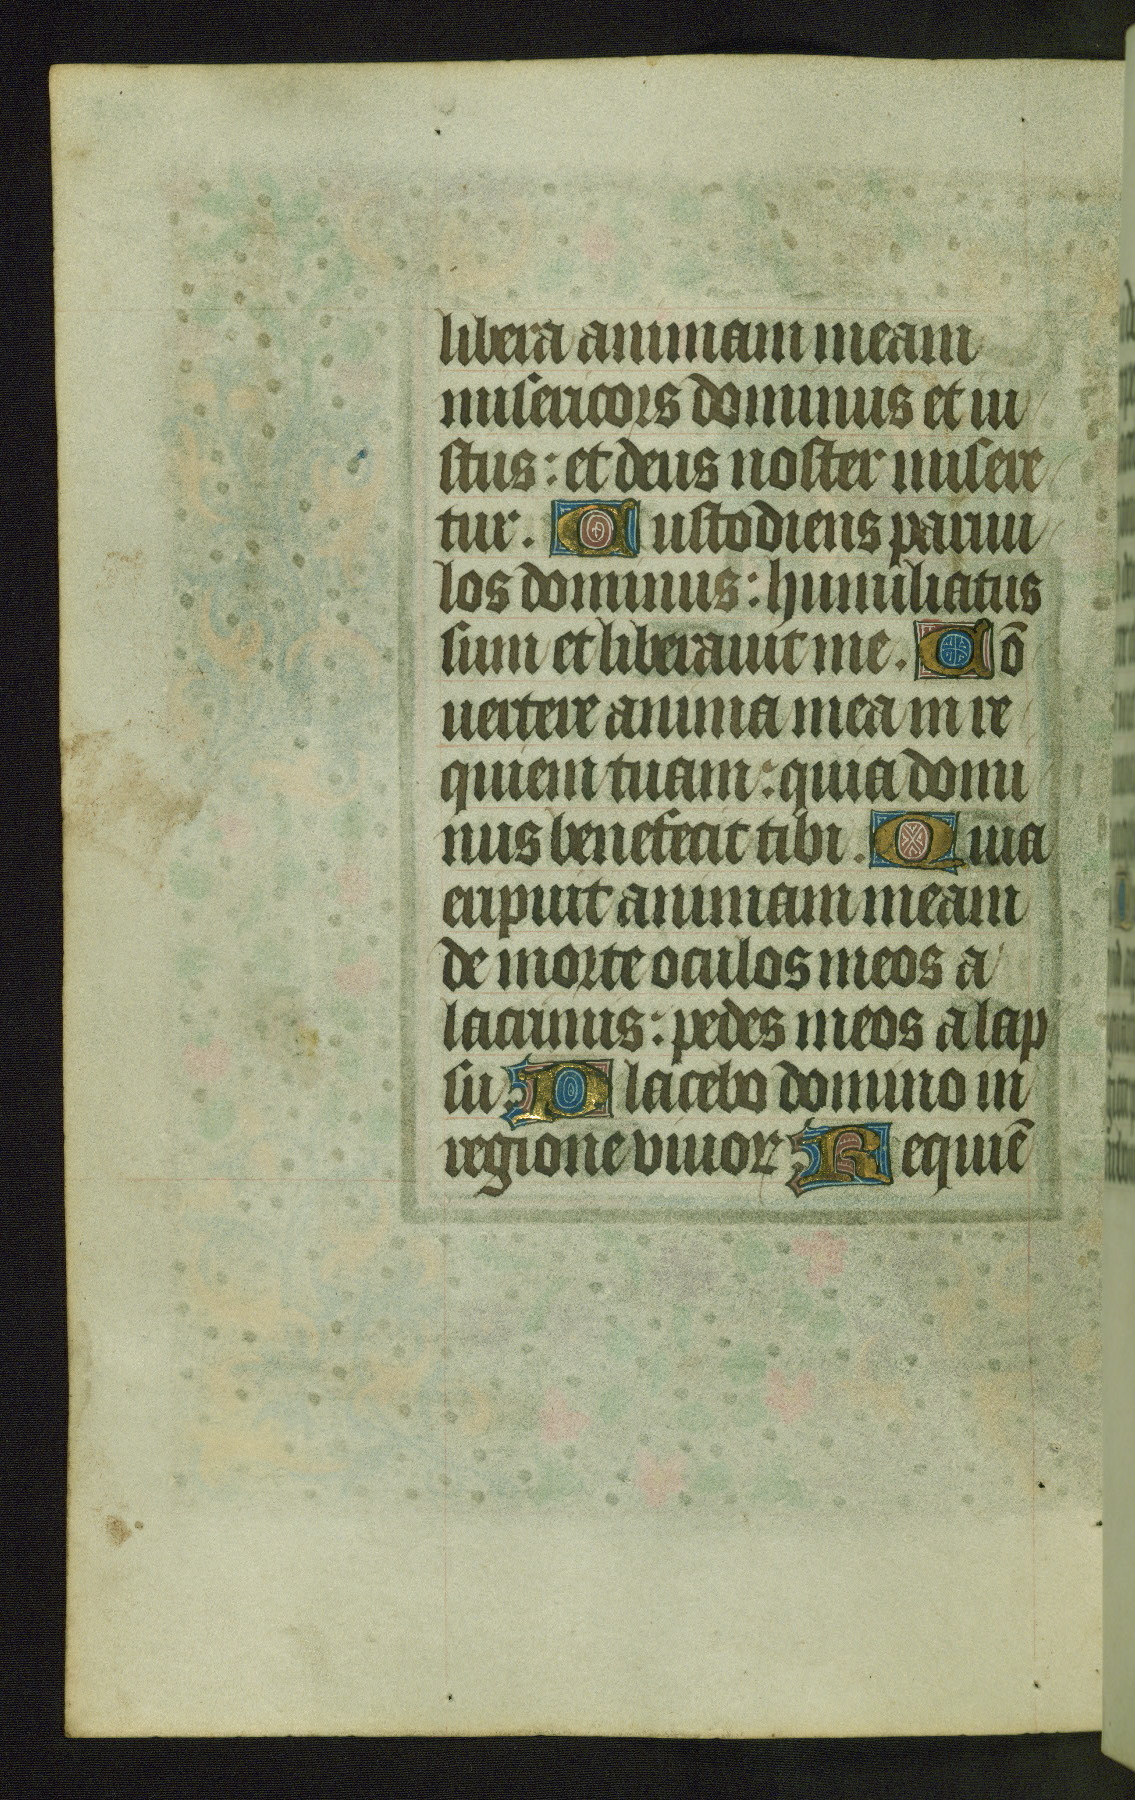 libera animam meam
misericors dominus et iu
stus: et deus noster misere
tur. Custodiens paruu
los dominus: humiliatus
sum et liberauit me. Cō
uertere anima mea in re
quiem tuam: quia domi
nus benefecit tibi. Quia
eripuit animam meam
de morte oculos meos a
lacrimis: pedes meos a lap
su Placebo domino in
regione viuor Requiē